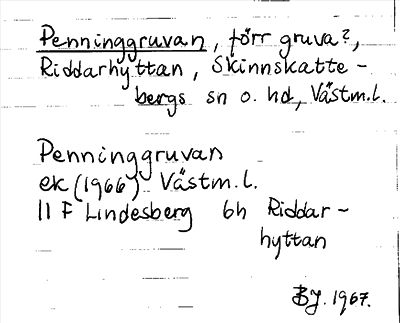 Penninggruvan, förr gruva?,
Riddarhyttan, Skinnskatte-
bergs sn o. hd, Västm.l.
Penninggruvan
ek (1966) Västm.l.
11 F Lindesberg 6h Riddar-
hyttan
BJ. 1967.